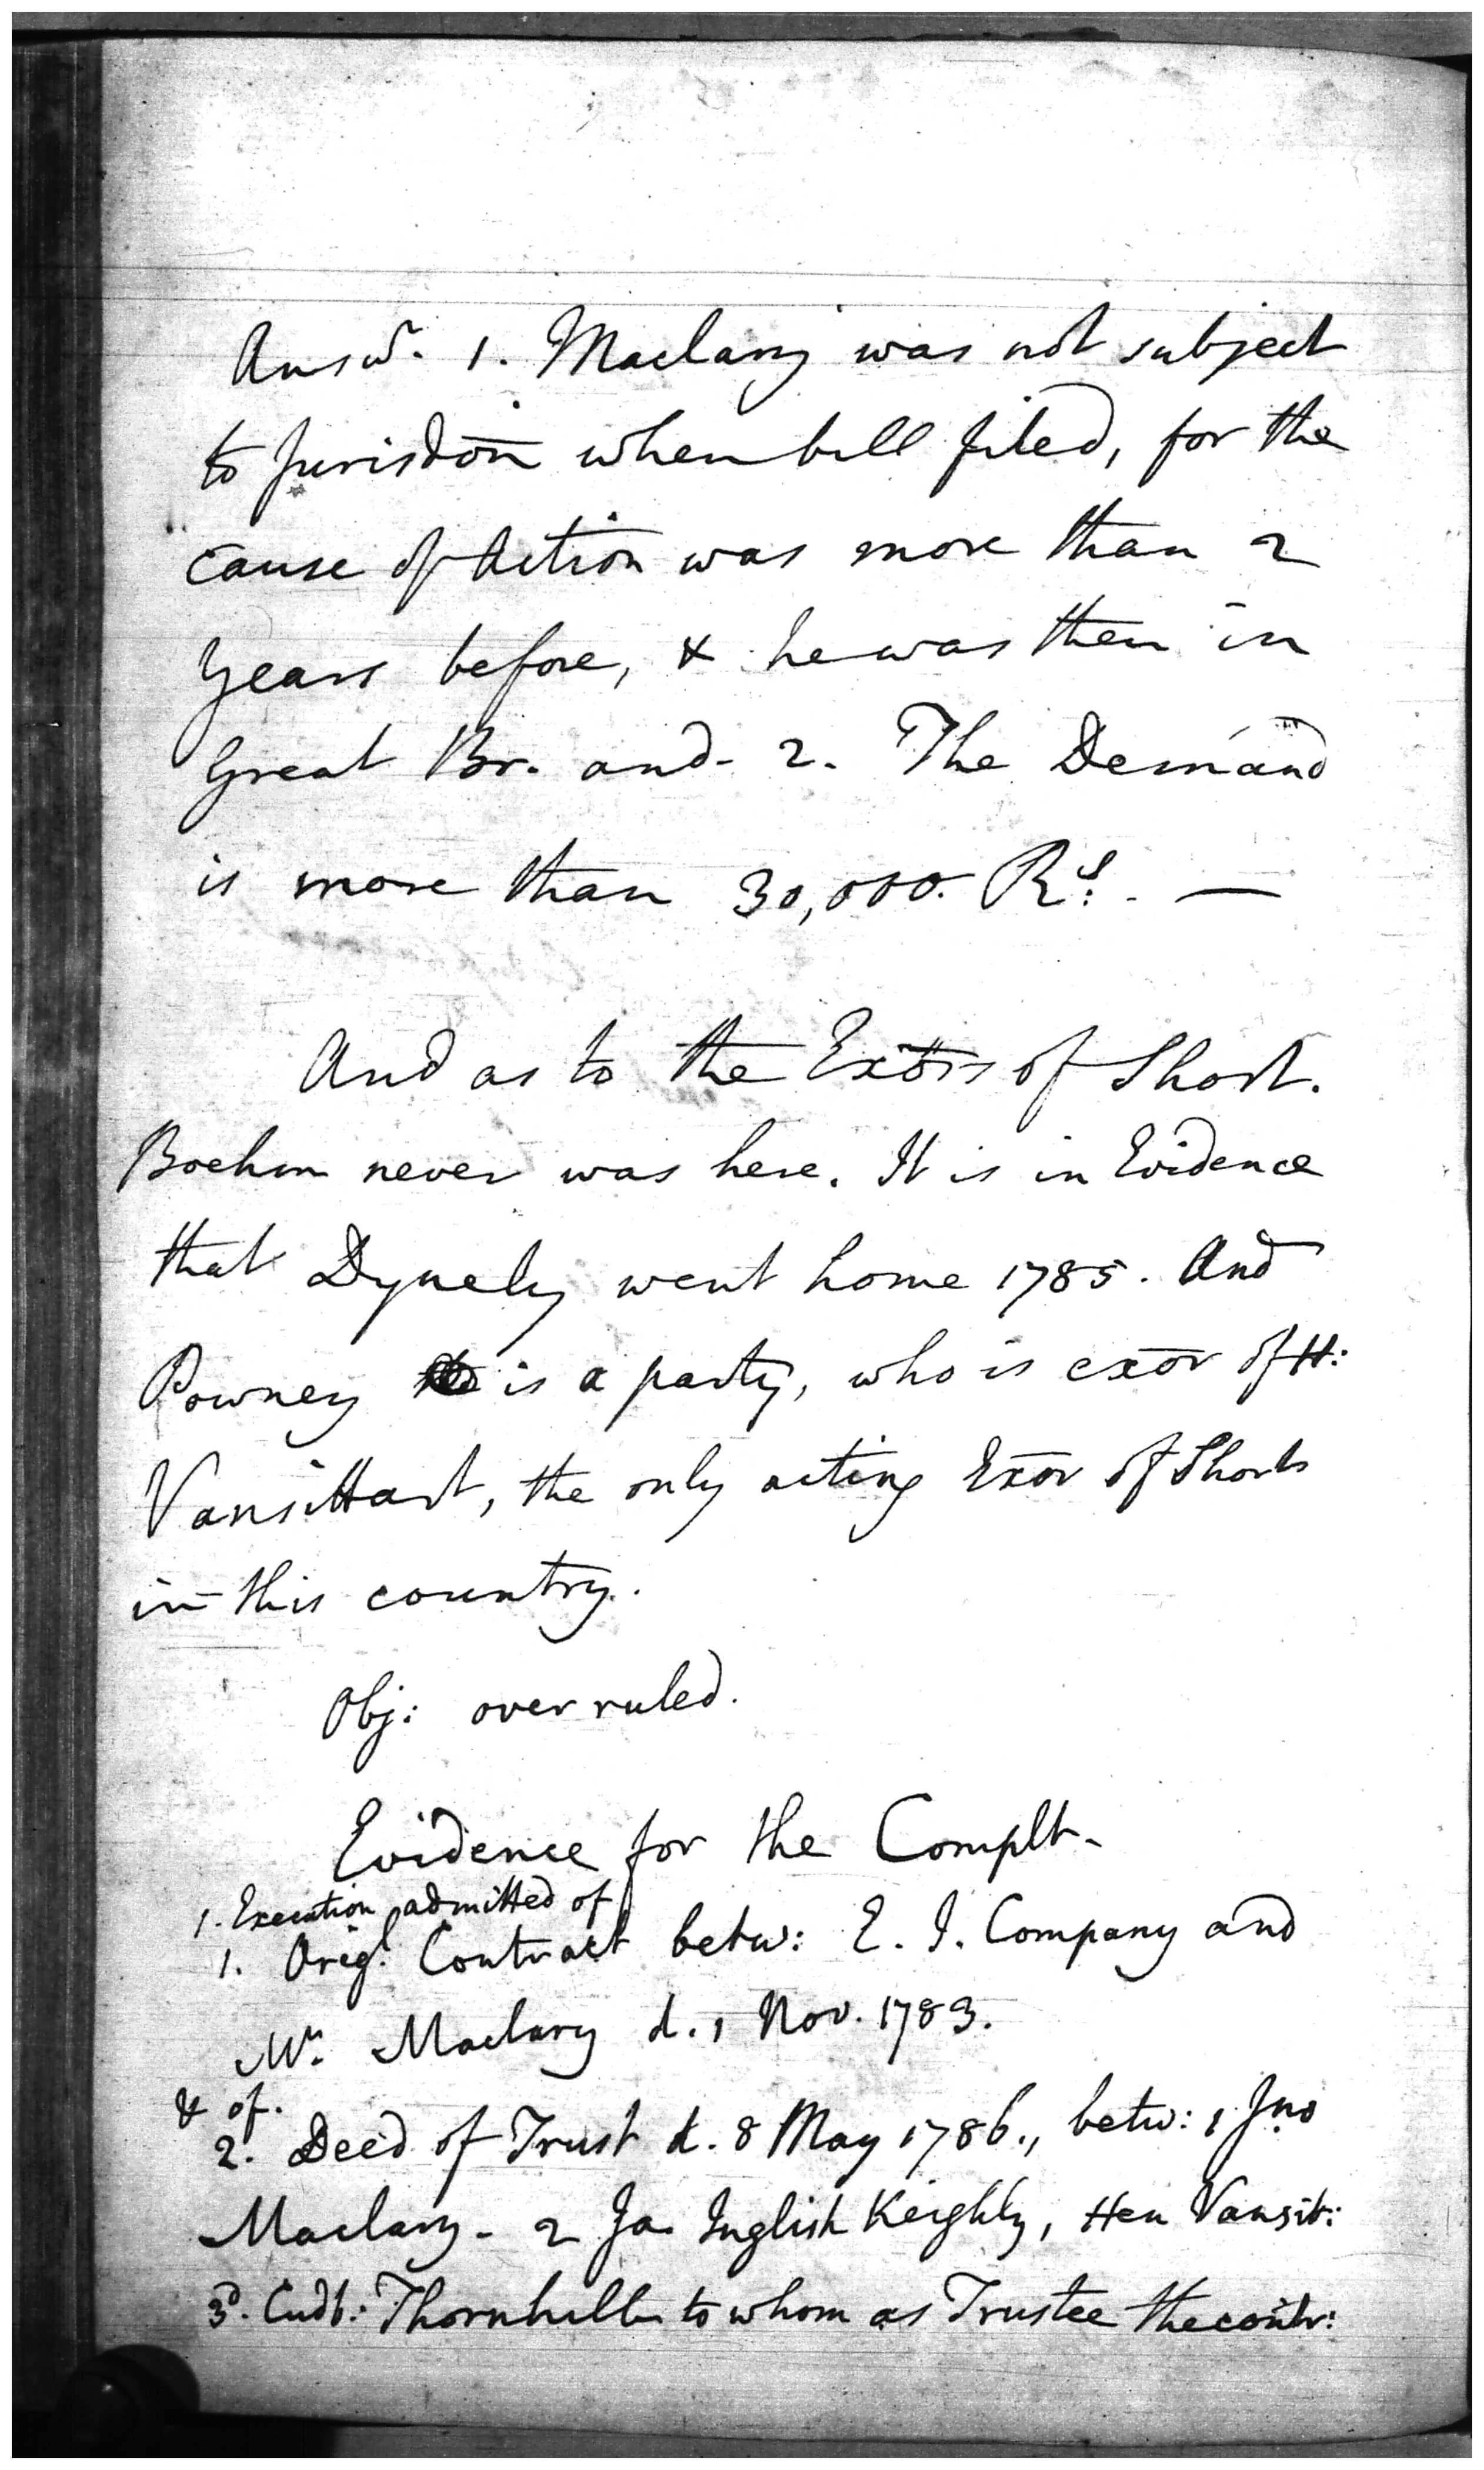 Answr. 1. Maclary was not subject
to Jurisdon when bill filed, for the
cause of Action was more than 2
years before, & he was then in
Great Br. and 2. The Demand
is more than 30,000. Rs. —
And as to the Exōrs of Short.
Boehm never was here. It is in Evidence
that Dynely went home 1785. And
Powney is a party, who is exōr of H:
Vansittart, the only acting Exōr of Shorts
in this country.
Obj: over ruled.
Evidence for the Complt-
1. Execution admitted of
1. Origl. Contract betw: E. I. Company and
Mr. Maclary d. 1 Nov. 1783.
& of.
2. Deed of Trust d. 8 May 1786., betw: 1 Jno
Maclary - 2 Ja. Inglish Keighly, Hen Vansit:
3d. Cudb: Thornhill to whom as Trustee the contr: